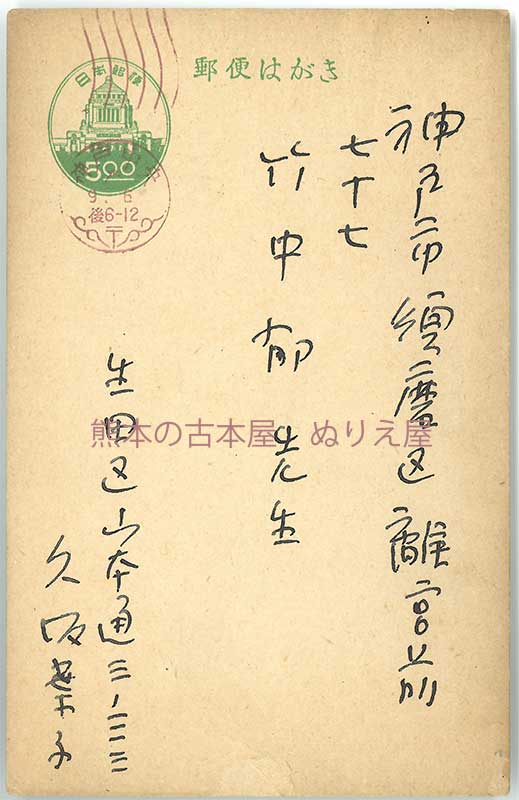 郵便はがき
日本郵便
5.00
9. 6
後6-12
〒
神戸市須磨区離宮前
七十七
竹中郁先生
生田区山本通三ノ三三
久坂葉子
熊本の古本屋 ぬりえ屋